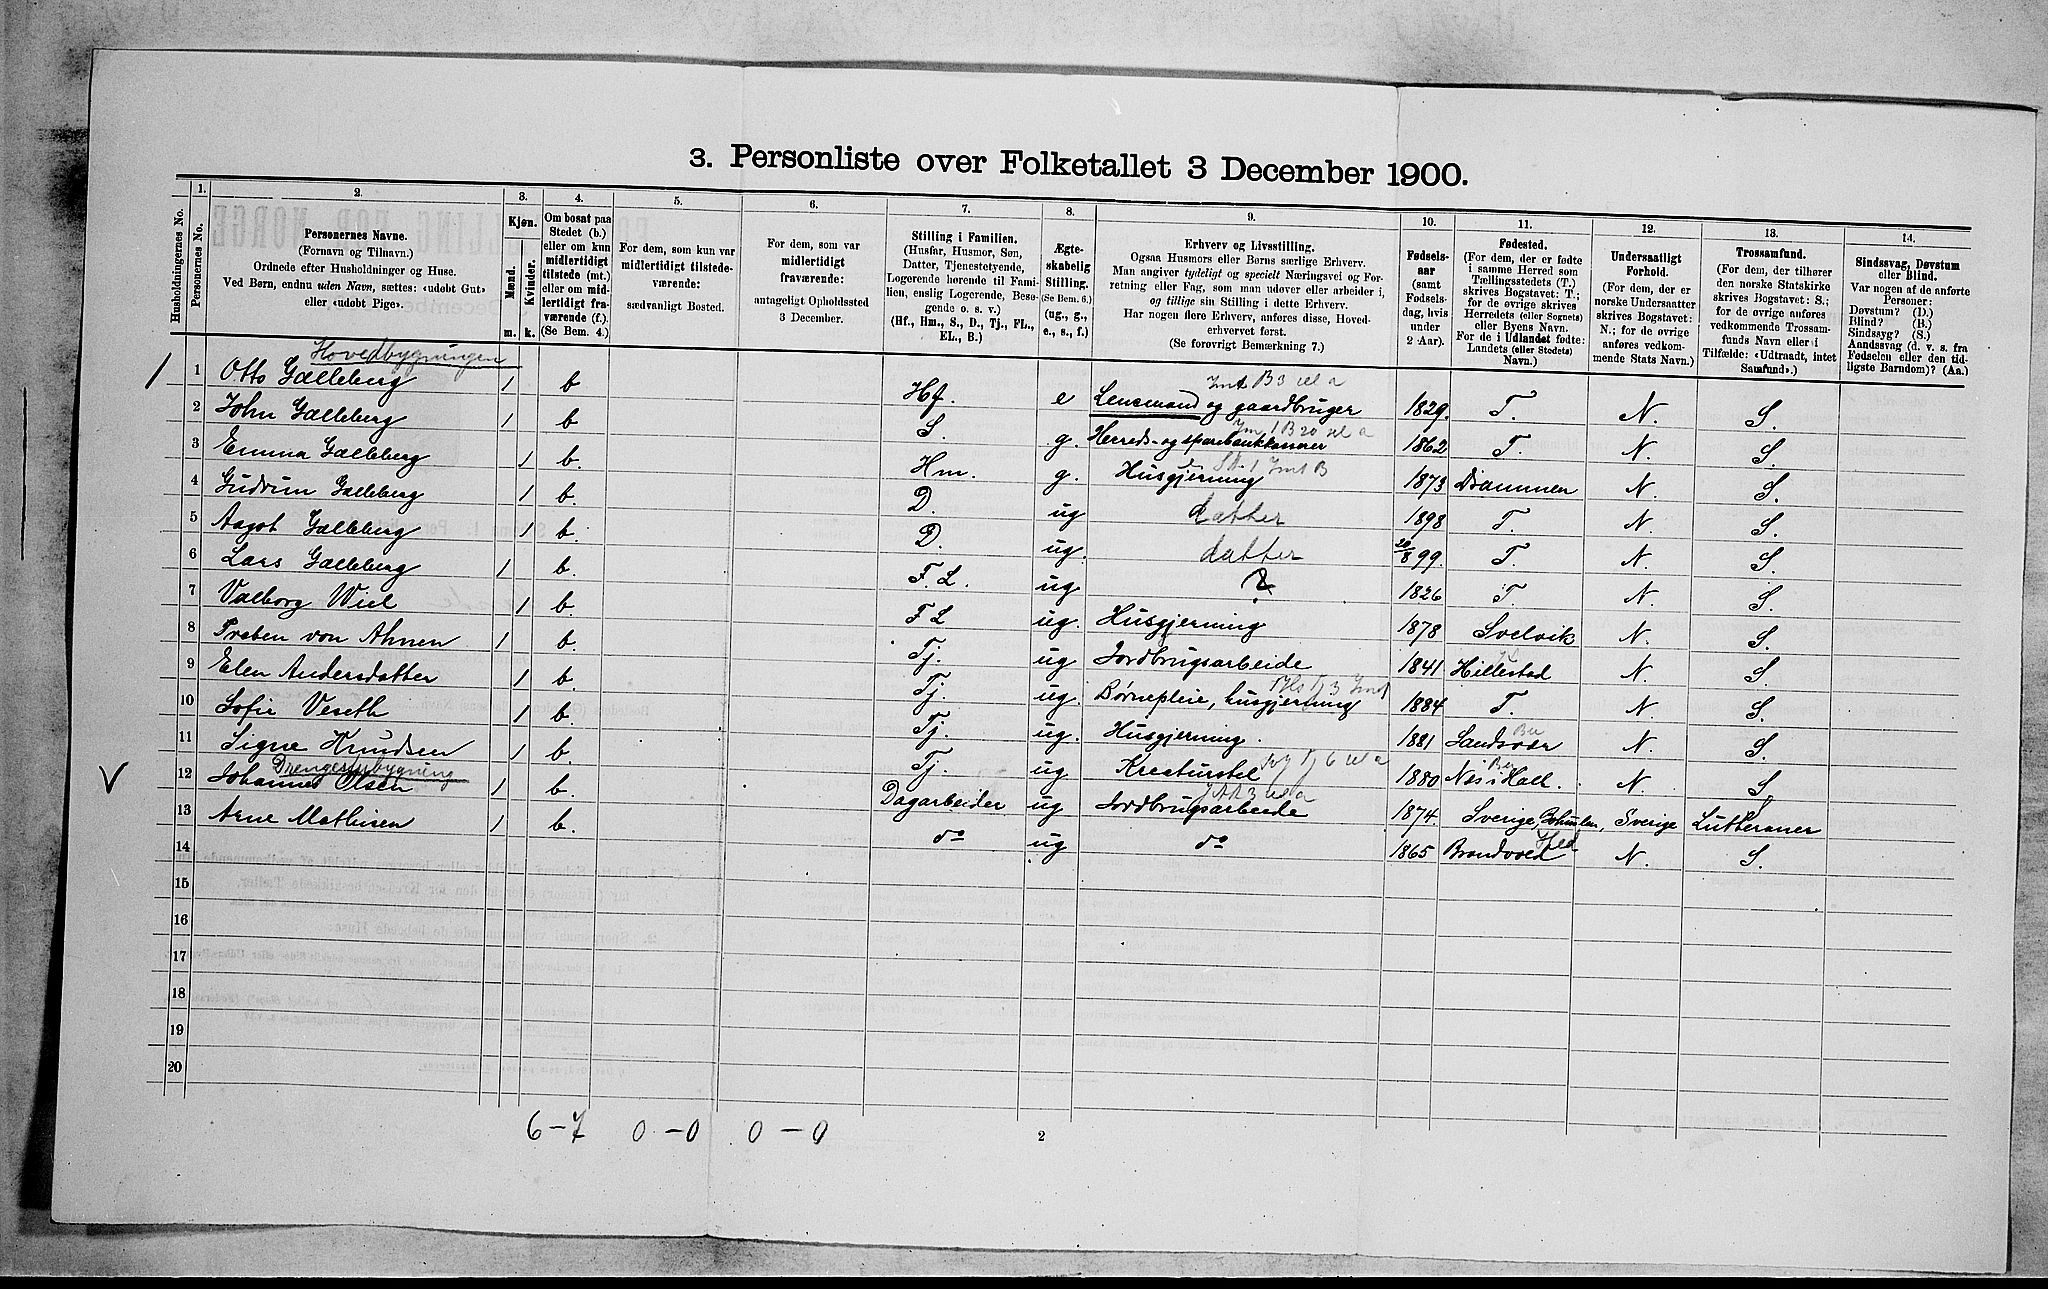 3. Personliste over Folketallet 3 December 1900.
Husholdningernes No.
1.
Personernes No.
2.
Personernes Navne.
(Fornavn og Tilnavn.)
Ordnede efter Husholdninger og Huse.
Ved Børn, endnu uden Navn, sættes: «udøbt Gut»
eller «udøbt Pige».
3.
Kjøn.
Mænd.
Kvinder.
m. k.
4.
Om bosat paa
Stedet (b.)
eller om kun
midlertidigt
tilstede (mt.)
eller om mid-
lertidigt fra-
værende (f.).
(Se Bem. 4.)
5.
For dem, som kun var
midlertidigt tilstede-
værende:
sædvanligt Bosted.
6.
For dem, som var
midlertidigt
fraværende:
antageligt Opholdssted
3 December.
7.
Stilling i Familien.
(Husfar, Husmor, Søn,
Datter, Tjenestetyende,
Logerende hørende til Fami-
lien, enslig Logerende, Besø-
gende o. s. v.)
(Hf., Hm., S., D., Tj., FL.,
EL., B.)
8.
Ægte-
skabelig
Stilling.
(Se Bem. 6.)
(ug., g.,
e., s., f.)
9.
Erhverv og Livsstilling.
Ogsaa Husmors eller Børns særlige Erhverv.
Man angiver tydeligt og specielt Næringsvei og For-
retning eller Fag, som man udøver eller arbeider i,
og tillige sin Stilling i dette Erhverv.
Har nogen flere Erhverv, anføres disse, Hoved-
erhvervet først.
(Se forøvrigt Bemærkning 7.)
10.
Fødsels-
aar
(samt
Fødsels-
dag, hvis
under
2 Aar).
11.
Fødested.
(For dem, der er fødte
i samme Herred som
Tællingsstedets (T.)
skrives Bogstavet: T.;
for de øvrige skrives
Herredets (eller Sognets)
eller Byens Navn.
For de i Udlandet fødte:
Landets (eller Stedets)
Navn.)
12.
Undersaatligt
Forhold.
(For dem, der er
norske Undersaatter
skrives Bogstavet:
N.; for de øvrige
anføres vedkom-
mende Stats Navn.)
13.
Trossamfund.
(For dem, der tilhører
den norske Statskirke
skrives Bogstavet: S.;
for de øvrige anføres
vedkommende Trossam-
funds Navn eller i
Tilfælde: «Udtraadt, intet
Samfund».)
14.
Sindssvag, Døvstum
eller Blind.
Var nogen af de anførte
Personer:
Døvstum? (D.)
Blind? (B.)
Sindssyg? (S.)
Aandssvag (d. v. s. fra
Fødselen eller den tid-
ligste Barndom)? (Aa.)
Hovedbygningen
1 1 Otto Galleberg 1 b Hf. e Lensmand og gaardbruger 1829. T. N. S.
2 John Galleberg 1 b S. g. Herreds- og sparebankkasserer 1862 T. N. S.
3 Emma Galleberg 1 b. Hm. g. Husgjerning 1873 Drammen N. S.
4 Gudrun Galleberg 1 b. D. ug datter 1898 T. N. S.
5 Aagot Galleberg 1 b. D. ug. datter 20/8 99 T. N. S.
6 Lars Galleberg 1 b. F.L. ug ? 1826 T. N. S.
7 Valborg Wiel 1 b. F L ug. Husgjerning 1878 Svelvik N. S.
8 Preben von Ahnen 1 b. Tj. ug Jordbrugsarbeide 1841 Hillestad N. S.
9 Elen Andersdatter 1 b. Tj ug. Børnepleie, husgjerning 1884 T. N. S.
10 Sofie Veseth 1 b. Tj. ug. Husgjerning. 1881 Sandsvær N. S.
11 Signe Knudsen 1 b. Tj. ug Kreaturstel 1880 Nes i Hall. N. S.
Drengestubygning
V 12 Johannes Olsen 1 b. Dagarbeider ug Jordbrugsarbeide 1874. Sverige, Bohuslen, Sverige Lutheraner
13 Arne Mathisen 1 b. do ug do 1865 Brandvold N. S.
14
15
16
17
18
19
20
6-7 0-0 0-0
2